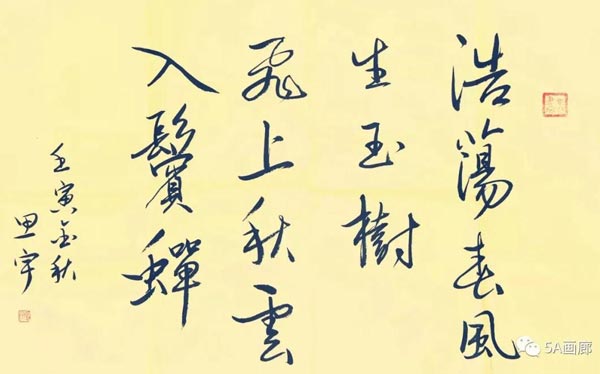 浩蕩春風
生玉樹
飛上秋雲
入鬢蟬
壬寅金秋
思宇
5A画廊